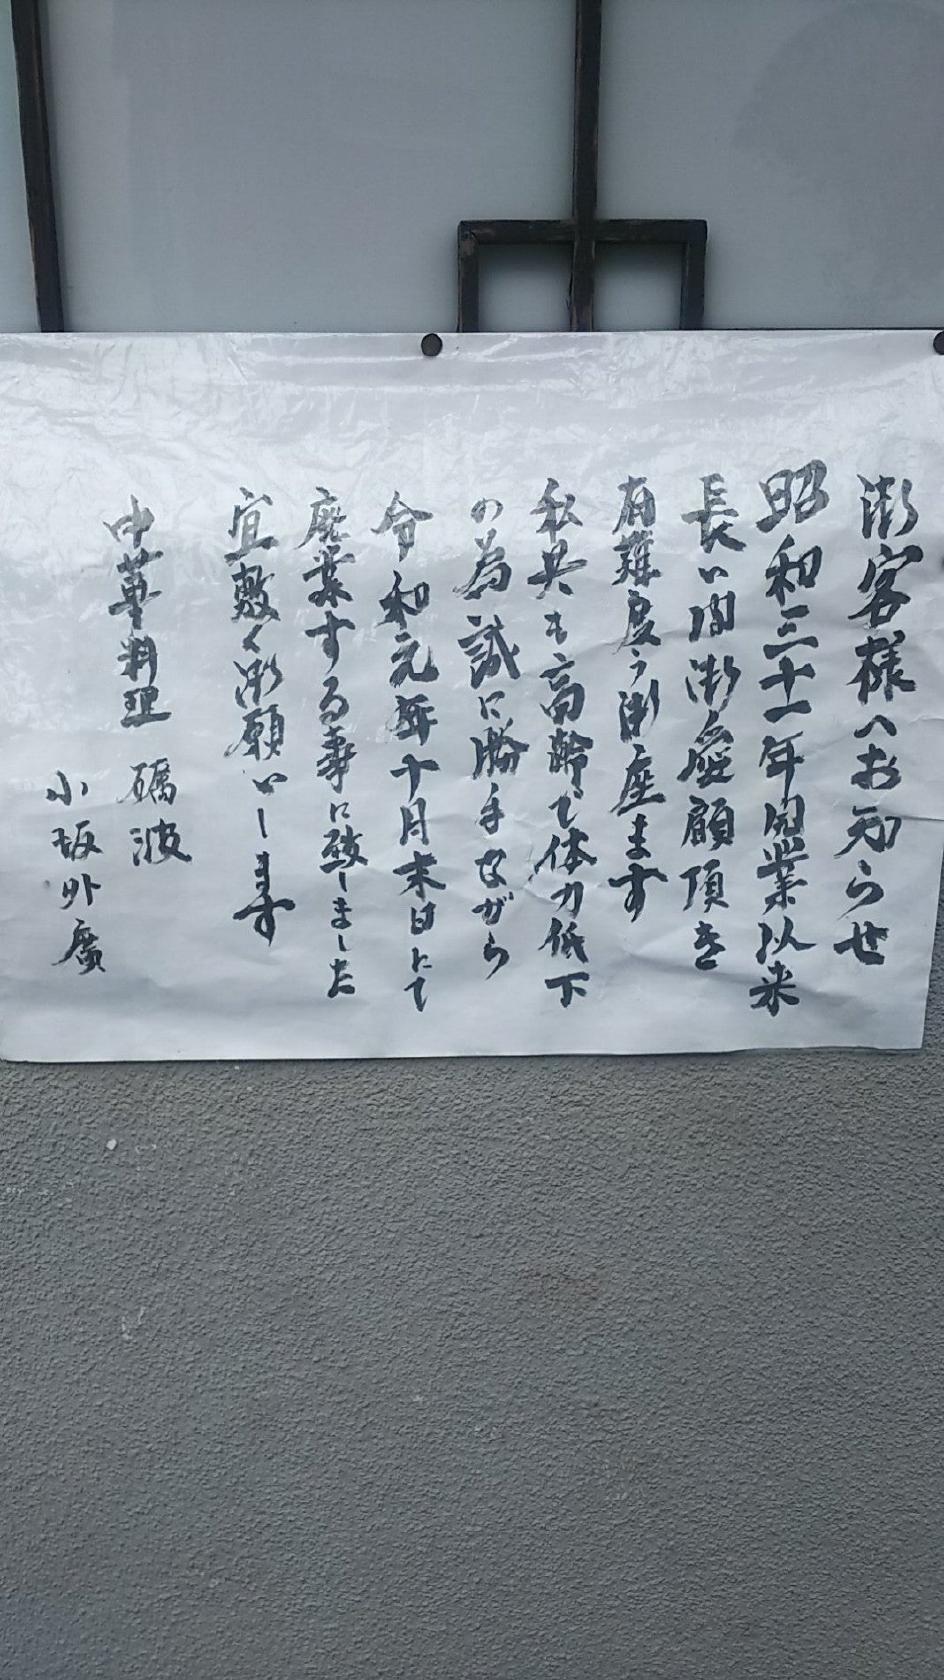 御客様へお知らせ
昭和三十一年開業以来
長い間御愛顧頂き
有難度う御座ます
私共も高齢で体力低下
の為誠に勝手ながら
令和元年十月末日にて
廃業する事に致しました
宜敷く御願いします
中華料理 礪波
小坂外廣